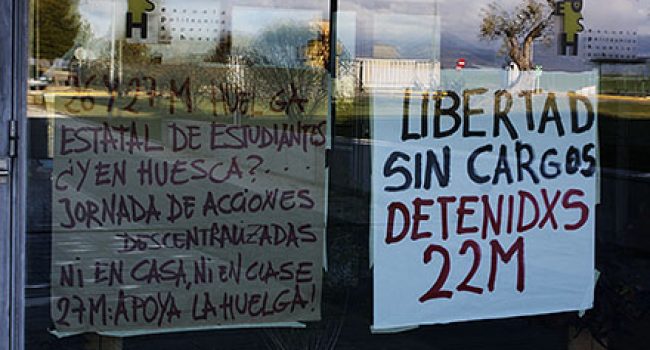 26 Y 27-M HUELGA
ESTATAL DE ESTUDIANTES
¿Y EN HUESCA?...
JORNADA DE ACCIONES
DESCENTRALIZADAS
NI EN CASA, NI EN CLASE
27M: APOYA LA HUELGA!
LIBERTAD
SIN CARGOS
DETENIDXS
22M